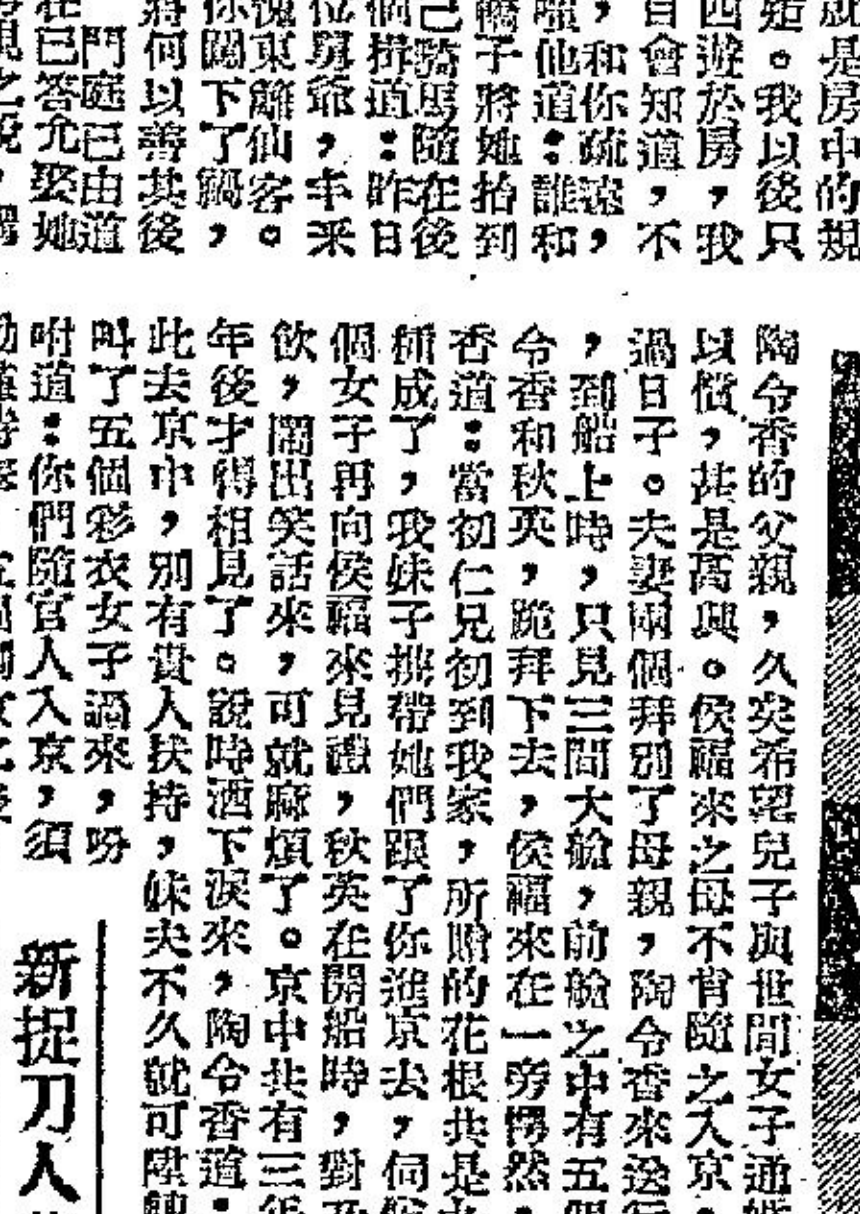 就是房中的規
短。我以後只
四遊於房，我
自會知道，不
，和你疏遠，
他道：誰和
轎子將她抬到
己騎馬隨在後
個揖道：昨日
位舅爺，年來
愧東籬仙客。
你關下了禍，
將何以善其後
門庭已由道
在已答允娶她
陶令香的父親，久矣希望兒子與世間女子通婚
以償，甚是高興。侯福來之母不肯隨之入京，
過日子。夫妻兩個拜別了母親，陶令香來送行
，到船上時，只見三間大艙，前艙之中有五個
令香和秋英，跪拜下去，侯福來在一旁愕然。
香道：當初仁兄初到我家，所贈的花根共是
種成了，我妹子攜帶她們跟了你進京去，伺
個女子再向侯福來見禮，秋英在開船時，對
飲，鬧出笑話來，可就麻煩了。京中共有三年
年後才得相見了。說時洒下淚來，陶令香道：
此去京中，別有貴人扶持，妹夫不久就可陞
叫了五個彩衣女子過來，吩
咐道：你們隨官人入京，須
新捉刀人